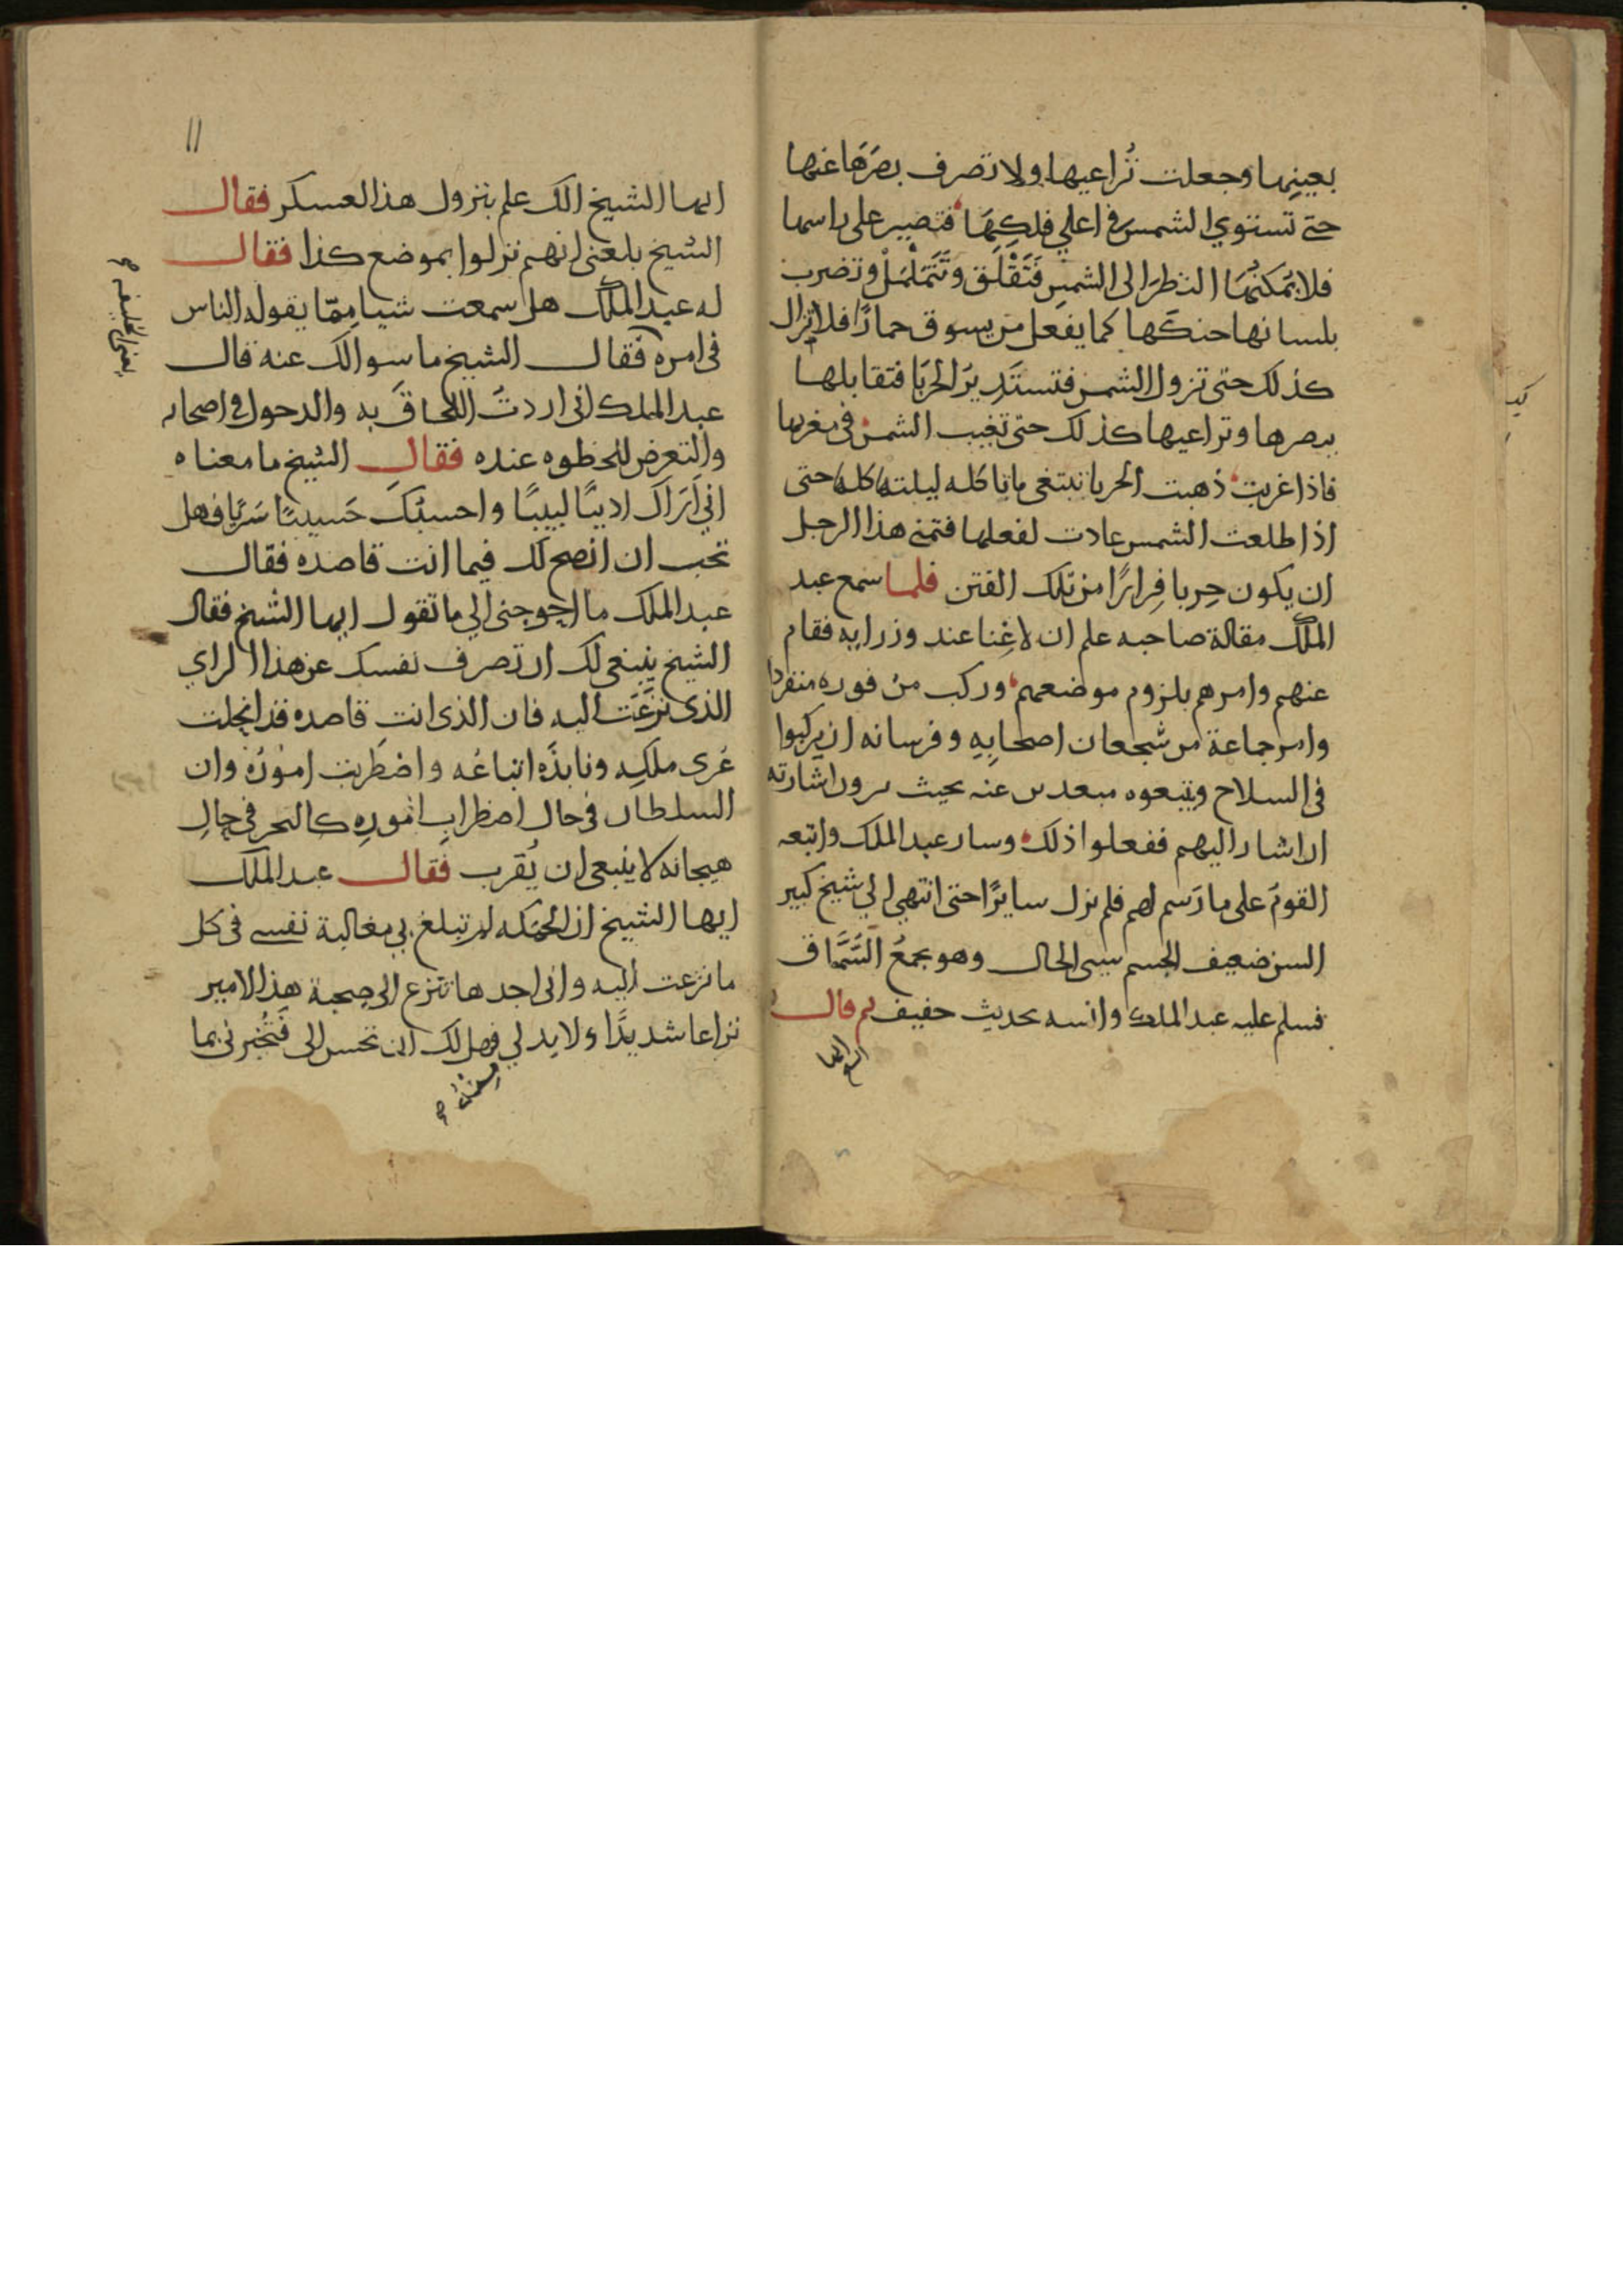 بعينها وجعلت تُراعيها ولا تصرف بصَرَهَا عنها
حتى تستوي الشمس في اعلي فلكِهَا فتصير على راسها
فلا يُمكنُهَا النظرَ الى الشمسِ فَتَقْلَق وتَتَمَلْمَلْ وتضرب
بلسانها حنكَها كما يفعل من يسوق حمارًا فلا تزال
كذلك حتى تزول الشمس فتستَدِيرَ الحربَا فتقابلها
ببصرها وتراعيها كذلك حتى تغيب الشمس في مغربها
فاذا غربت ذهبت الحربا تبتغى ما تاكله ليلتها كلها حتى
اذا طلعت الشمس عادت لفعلها فتمنى هذا الرجل
ان يكون حِربا فِرارًا من تلك الفتن فلما سمع عبد
الملك مقالة صاحبه علم ان لا غِنا عند وزرايه فقام
عنهم وامرهم بلزوم موضعهم وركب من فوره منفردا
وامر جماعة من شجعان اصحابِهِ وفرسانه ان يركبوا
فى السلاح ويتبعوه مبعدين عنه بحيث يرون اشارته
ان اشار اليهم ففعلوا ذلك وسار عبد الملك واتبعه
القومُ على ما رَسم لهم فلم يزل سايرًا حتى انتهي الي شيخ كبير
السن ضعيف الجسم سيى الحال وهو يجمعُ السُّمَّاق
فسلم عليه عبد الملك وانسه بحديث خفيف ثم قال له
ايها
١١
ايها الشيخ الك علم بنزول هذا العسكر فقال
الشيخ بلغنى انهم نزلوا بموضع كذا فقال
له عبد الملك هل سمعت شيا مِمّا يقوله الناس
فى امره فقال الشيخ ما سوالك عنه قال
عبد الملك انى اردتُ اللحاقَ به والدخول في اصحابه
والتعرض للحظوه عنده فقال الشيخ ما معناه
اني اَرَاكَ اديبًا لبيبًا واحسبُكَ حَسيبًا سَرِيًا فهل
تحب ان انصح لك فيما انت قاصده فقال
عبد الملك ما احوجنى الي ما تقول ايها الشيخ فقال
الشيخ ينبغى لك ان تصرف نفسك عن هذا الراي
الذى نَزَعَتْ اليه فان الذى انتِ قاصده قد انحلت
عُرى ملكِهِ ونابذَه اتباعُه واضطَربت امورُهُ وان
السلطان فى حال اضطرابِ امُورِهِ كالبحر في حالِ
هيجانه لا ينبغى ان يُقرب فقال عبد الملك
ايها الشيخ ان الحكمه لم تبلغ بي مغالبة نفسى فى كل
ما نزعت اليه وانى اجدها تنزع الى صحبة هذا الامير
نزاعا شديدًا ولا بد لي فهل لك ان تحسن الى فَتُخبرنى بما
يعنى الخليفه